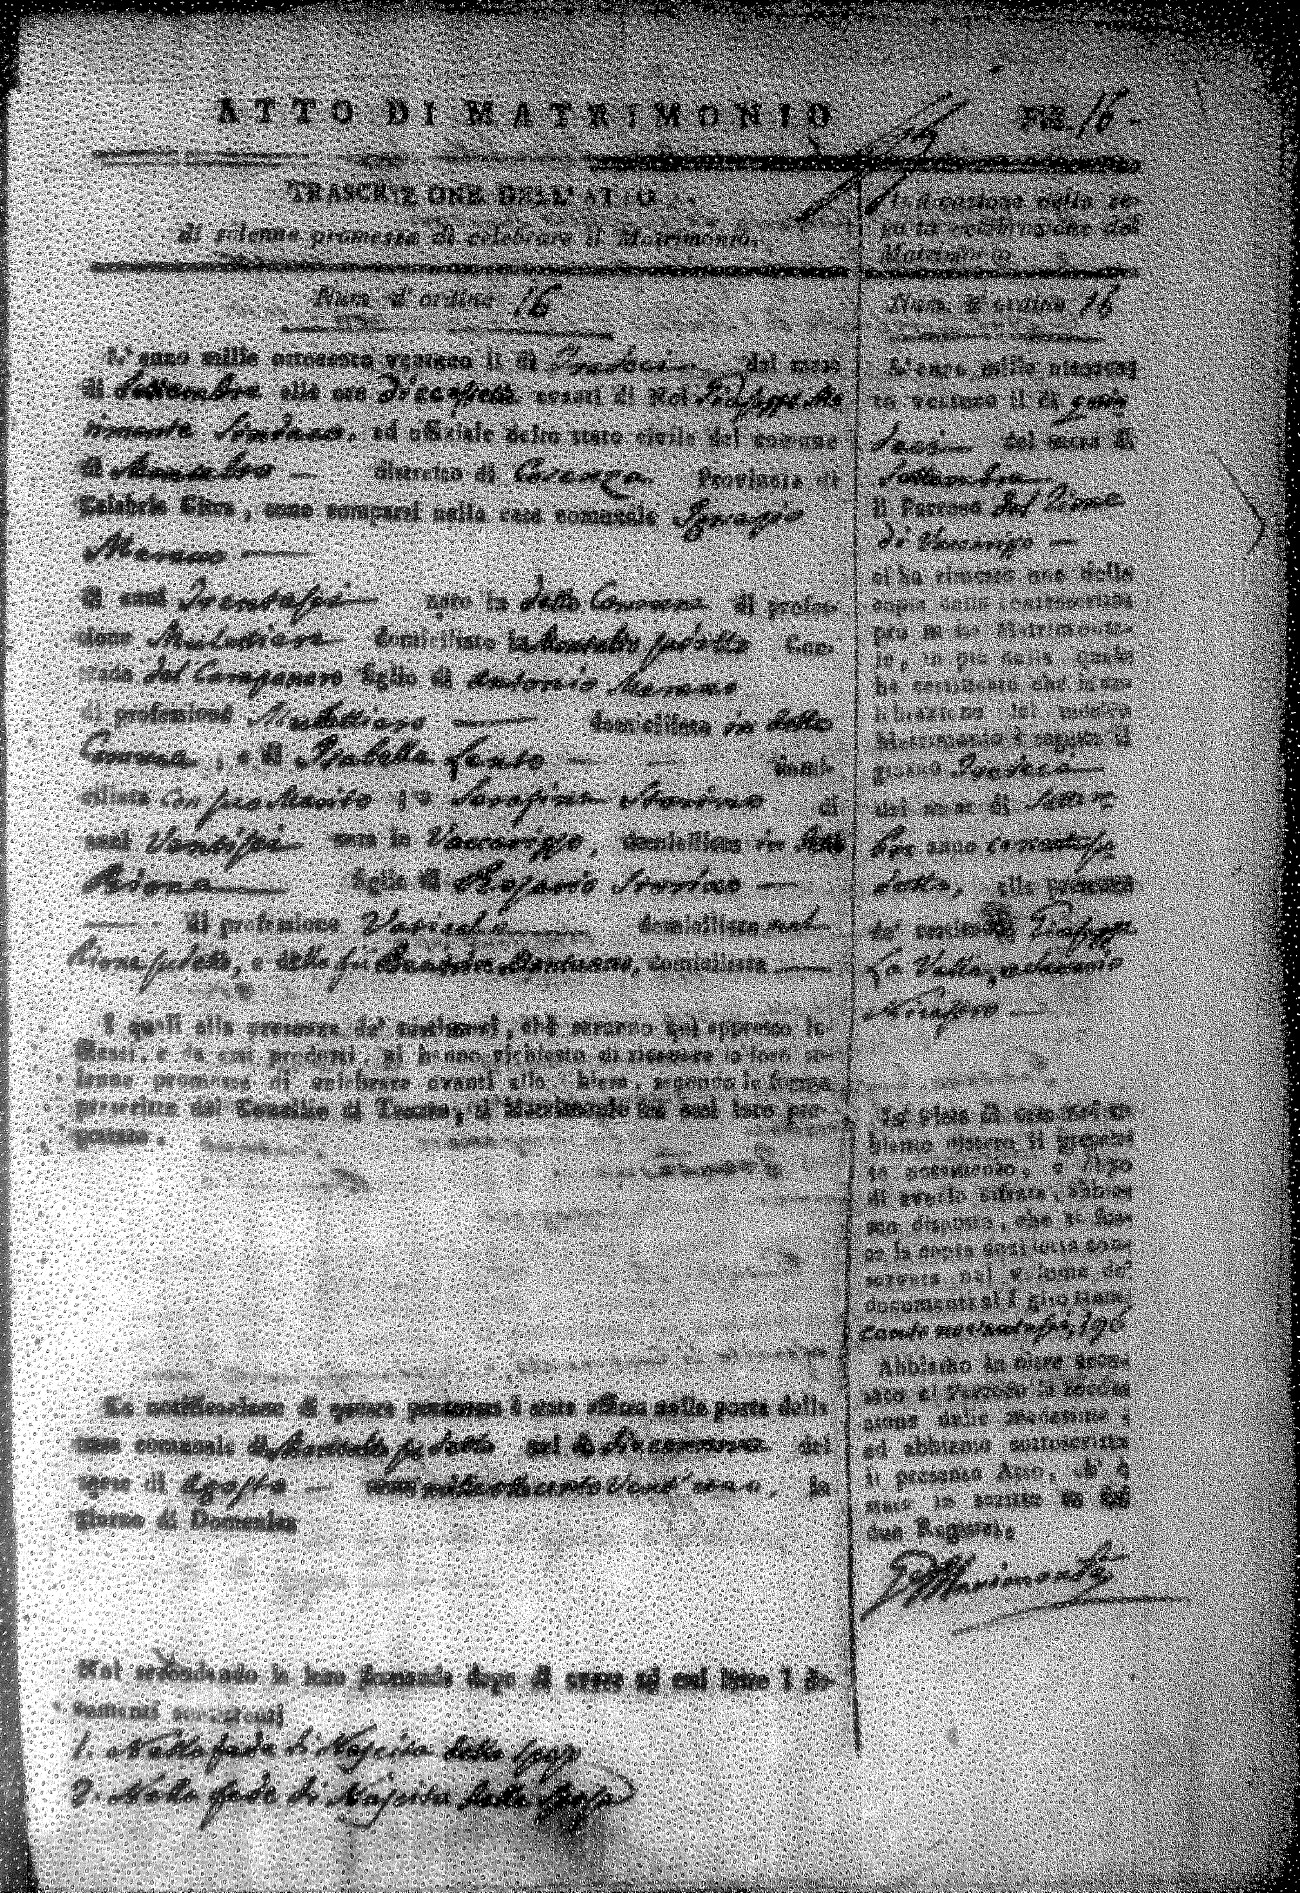 ATTO DI MATRIMONIO
Fog. 16
TRASCRIZIONE DELL' ATTO
di solenne promessa di celebrare il Matrimonio.
Num. d'ordine 16
L'anno mille ottocento ventuno il dì Tredeci del mese
di Settembre alle ore diecasette avanti di Noi Giuseppe Ma
rimonte Sindaco, ed offiziale dello stato civile del comune
di Montalto distretto di Cosenza Provincia di
Calabria Citra, sono comparsi nella casa comunale Ignazio
Merano
di anni Trentasei nato in detto Comune di profes-
sione domiciliato in Montalto sudetto Con-
trada del Campanaro figlio di Antonio Merano
di professione domiciliato in detto
Comune, e di Isabella Lento domi-
ciliata con suo Marito; e Serafina Storino di
anni Ventisei nata in Vaccarizzo, domiciliata in detto
Rione figlia di Rosario Storino
di professione domiciliato nel
Rione sudetto, e della fù domiciliata
I quali alla presenza de' testimonj, che saranno quì appresso in-
dicati, e da essi prodotti, ci hanno richiesto di ricevere la loro so-
lenne promessa di celebrare avanti alla Chiesa, secondo le forme
prescritte dal Concilio di Trento, il Matrimonio tra essi loro pro-
gettato.
La notificazione di questa promessa è stata affissa nella porta della
casa comunale di Montalto sudetto nel dì Diecennove del
mese di Agosto anno mille ottocento vent'uno, in
giorno di Domenica
Noi secondando la loro domanda dopo di avere ad essi letto i do-
cumenti consistenti
1. Nella fede di Nascita dello Sposo
2. Nella fede di Nascita della Sposa
Indicazione della se-
guita celebrazione del
Matrimonio
Num. d'ordine 16
L'anno mille ottocen
to ventuno il dì quin
deci del mese di
Settembre
il Parroco del Rione
di Vaccarizzo
ci ha rimesso una delle
copie della controscritta
pro m ssa Matrimonia-
le, in piè della quale
ha certificato che la ce-
lebrazione del mentov
Matrimonio è seguita il
giorno Tredeci
del mese di Settem
bre anno
detto, alla presenza
de' testimonj Giuseppe
La Valle, e
In vista di essa noi ab-
biamo disteso il presen
te notamento, e dopo
di averlo cifrata, abbia-
mo disposto, che si fos-
se la copia anzidetta con-
servata nel volume de'
documenti al foglio
cento novantasei, 196
Abbiamo in oltre accu-
sato al Parroco la ricezione
della medesima,
ed abbiamo sottoscritto
il presente Atto, ch' è
stato in scritto su i
due Registri.
G Marimonte